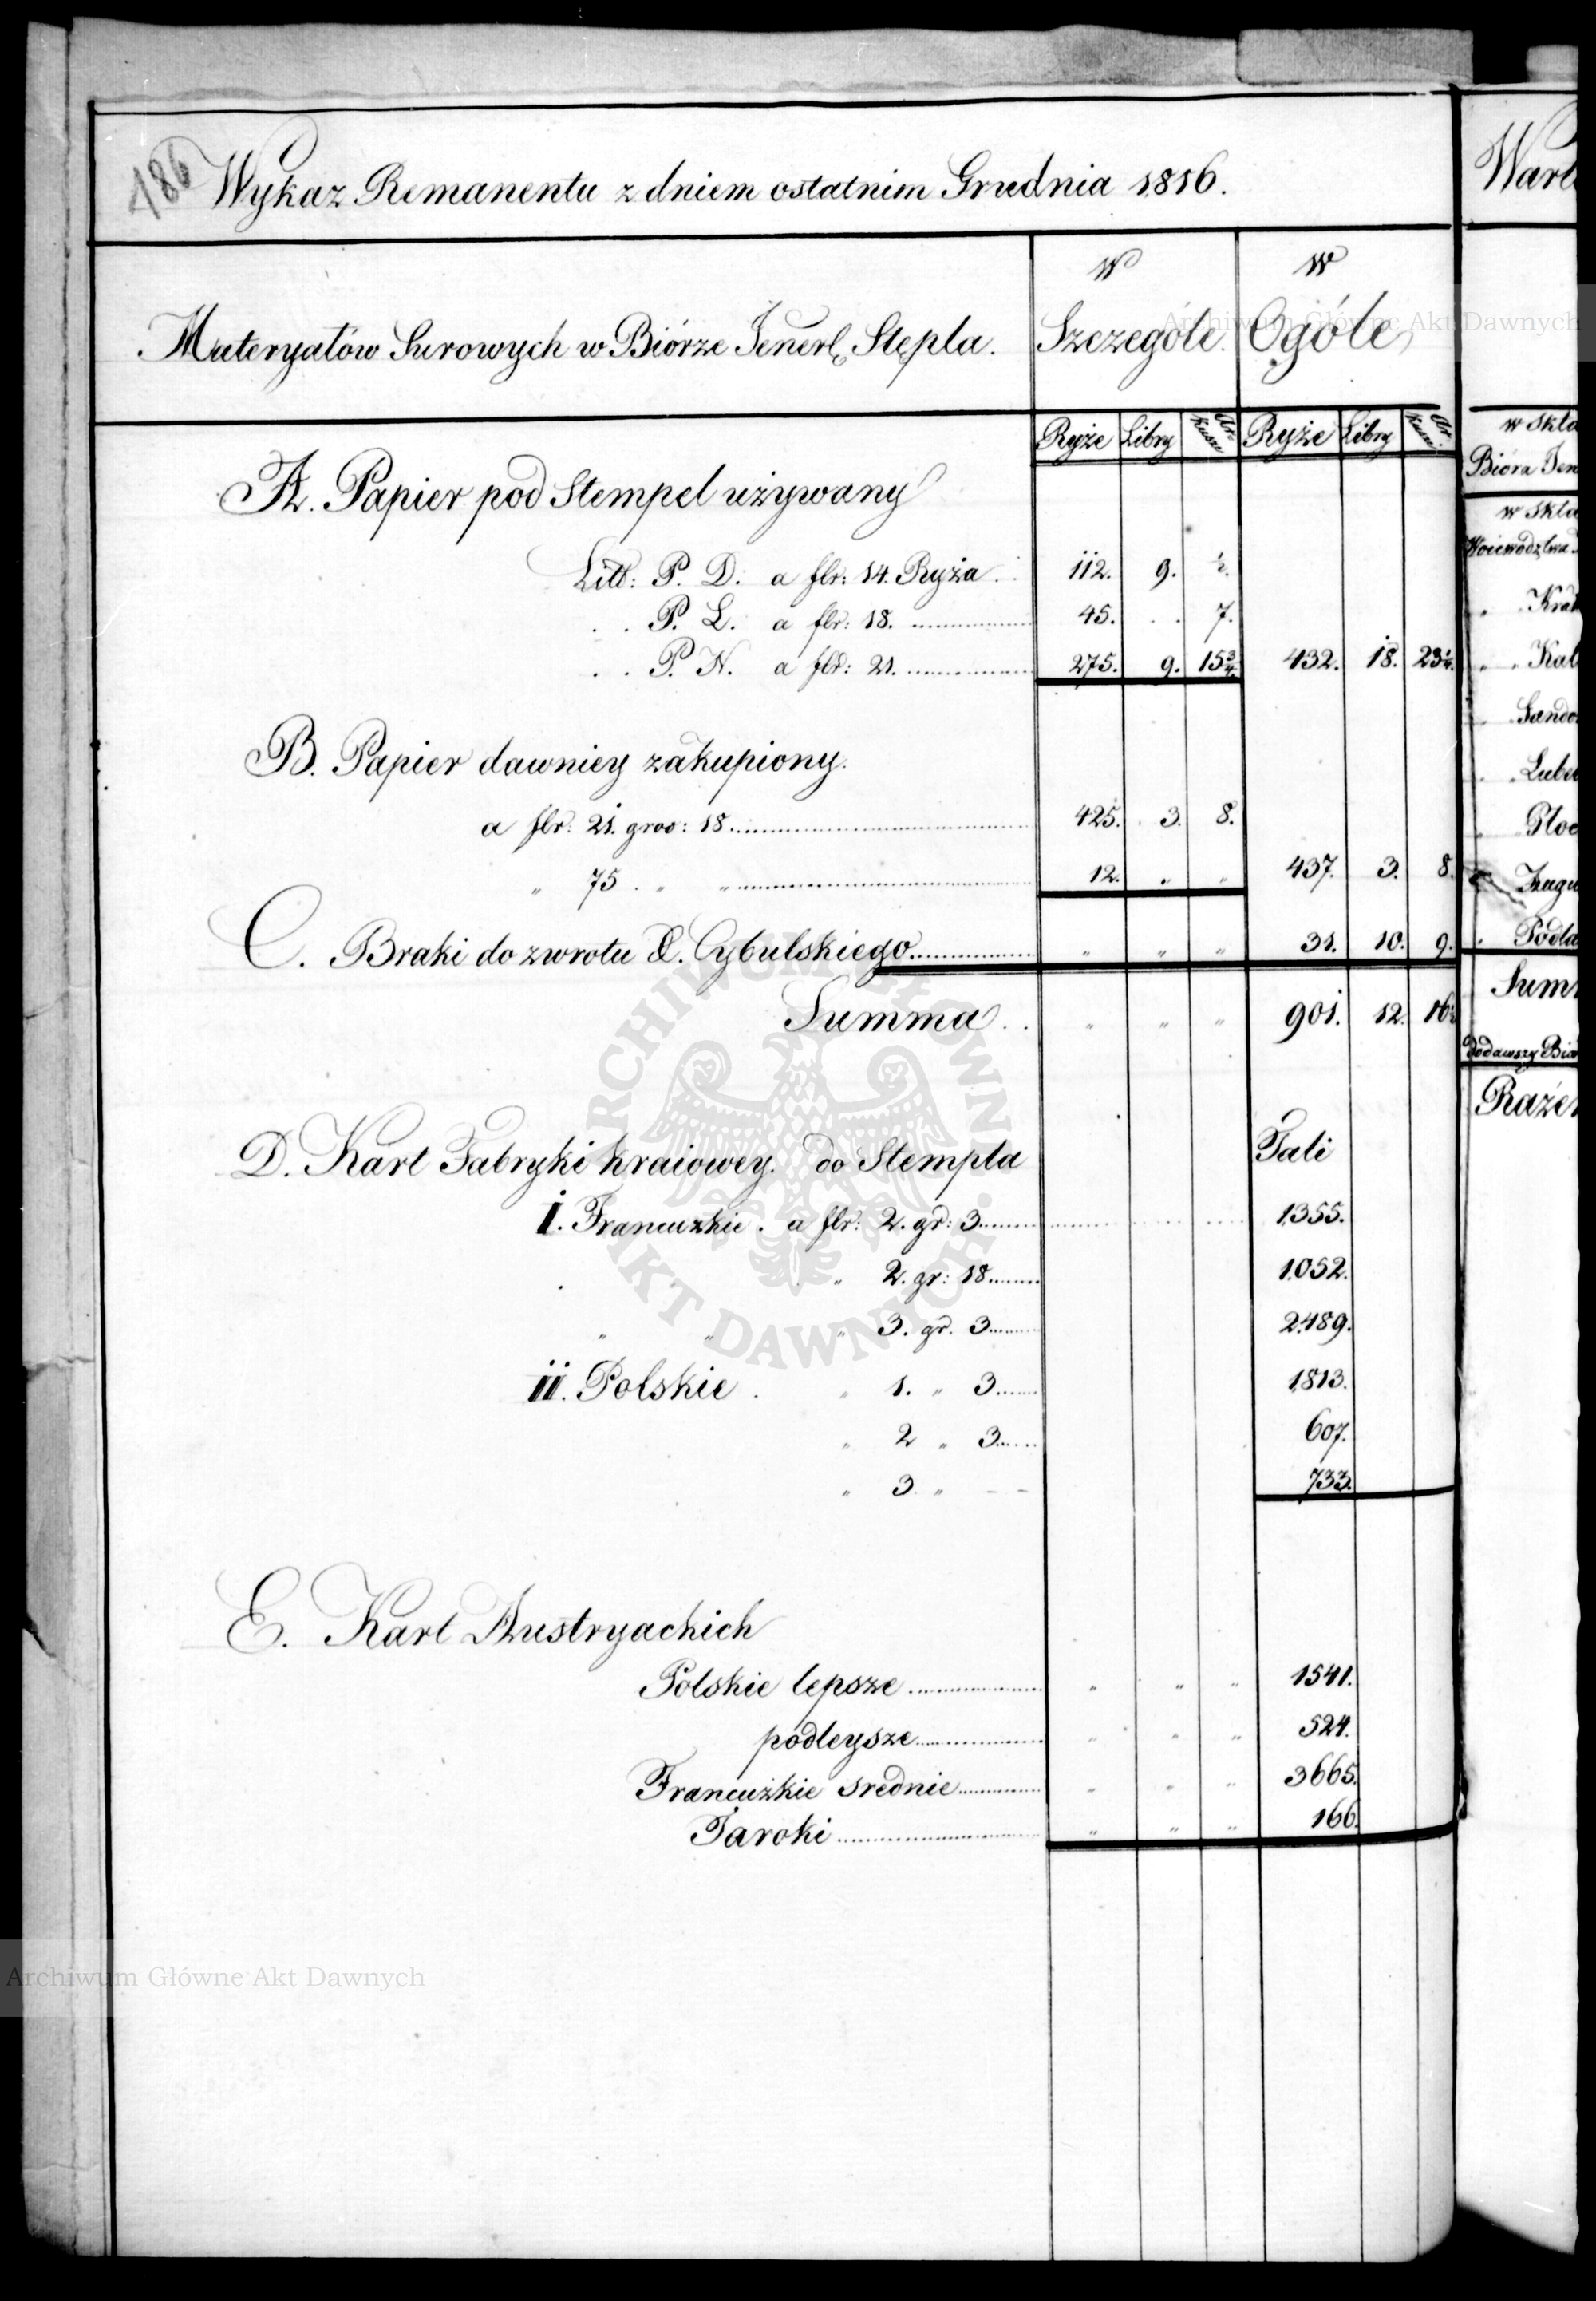 186
Wykaz Remanentu z dniem ostatnim Grudnia 1816.
Materyałów Surowych w Biórze Jenerl. Stępla.
w Szczególe.
w Ogóle,
Ryże Libry Arkusze Ryże Libry Arkusze
A. Papier pod Stempel używany
Litt: P. D. a flr: 14. Ryża . . 112. 9. ½.
. . P. L. a flr: 18. 45. . . 7.
. . P. N. a flr: 21. 275. 9. 15¾. 432. 18. 23¼.
B. Papier dawniey zakupiony.
a flr: 21. gros: 18 425. 3. 8.
„ 75 . „ „ 12. „ „ 437. 3. 8.
C. Braki do zwrotu Cybulskiego „ „ „ 31. 10. 9.
Summa . . „ „ „ 901. 12. 16
D. Kart Fabryki kraiowey. do Stempla Tali
I. Francuzkie . a flr: 2. gr: 3 1355.
„ 2. gr: 18 1052.
„ „ „ 3. gr. 3 2489.
II. Polskie . „ 1. „ 3 1813.
„ 2 „ 3 607.
„ 3. „ – – 733.
E. Kart Austryackich
Polskie lepsze „ „ „ 1541.
podleysze „ „ „ 524.
Francuzkie srednie „ „ „ 3665.
Taroki „ „ „ 166.
w Skła
Bióra Jen
w Skła
Woiewództwa
„ Krak
„ „ Kal
„ Sando
„ Lubel
„ Płoc
„ Augu
„ Podla
Sum
dodawszy Biór
Razem
Archiwum Główne Akt Dawnych
ARCHIWUM GŁÓWNE AKT DAWNYCH
Archiwum Główne Akt Dawnych